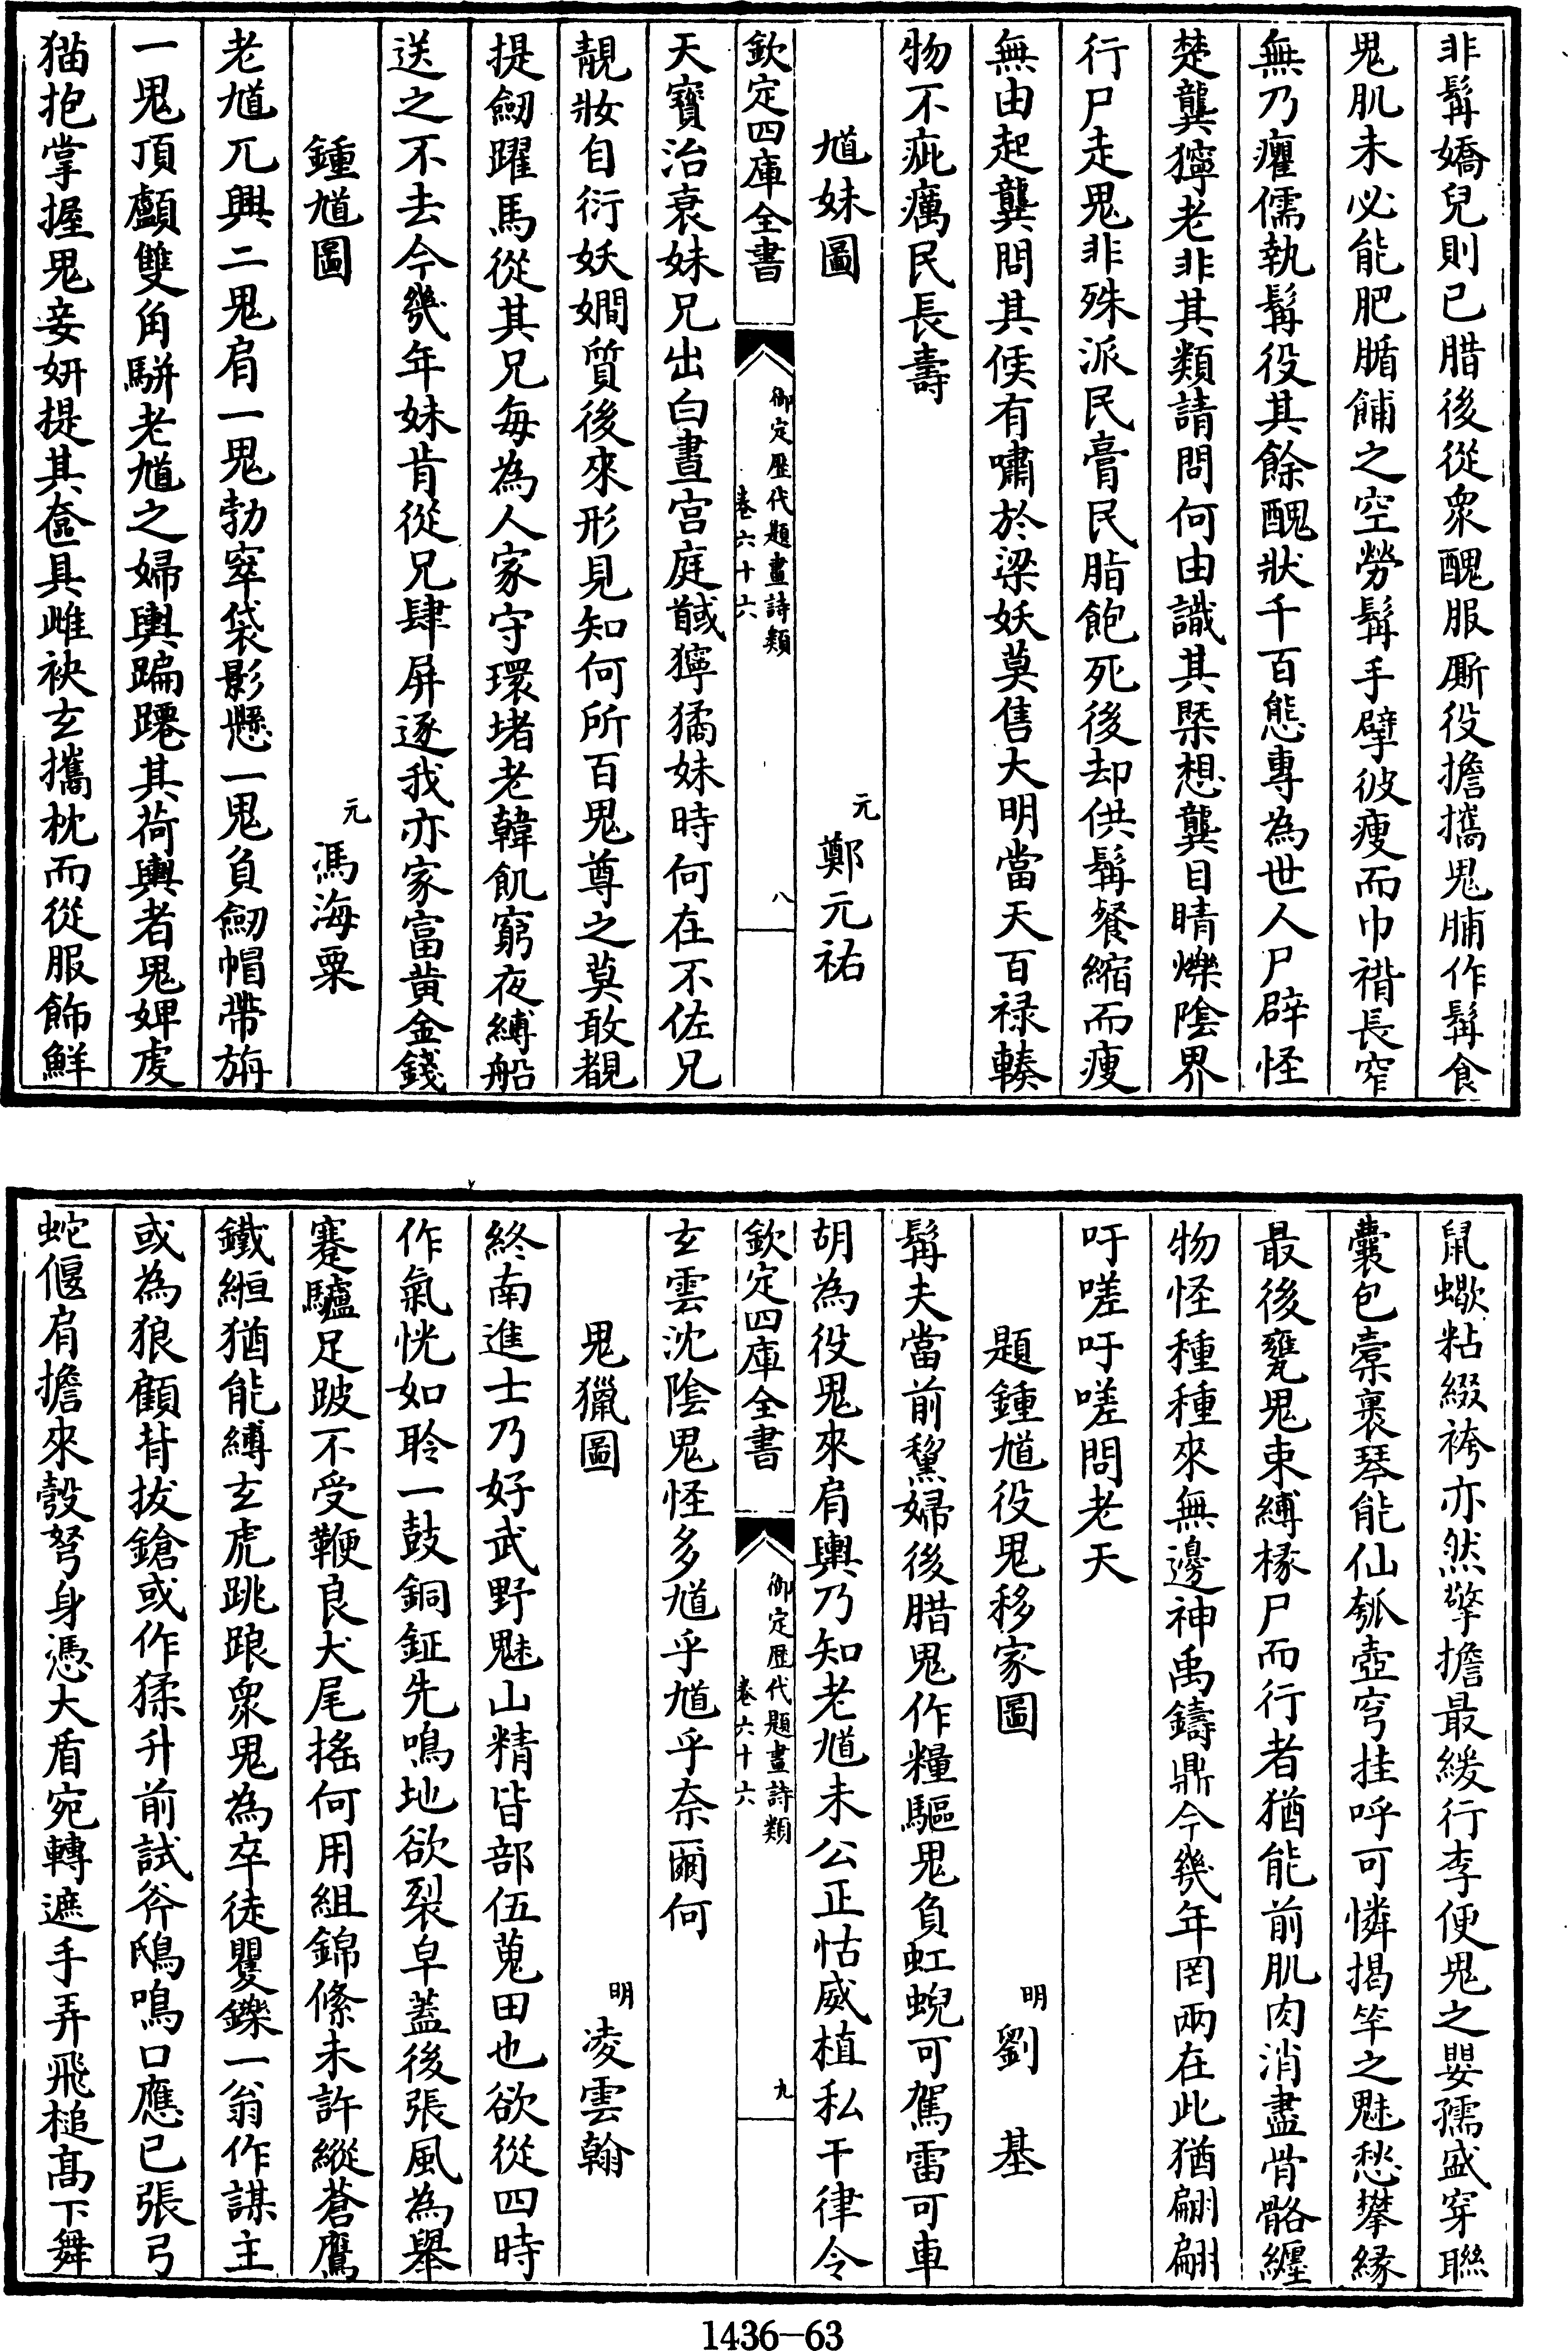 非髯嬌兒則已腊後從衆醜服厮役擔攜鬼脯作髯食
鬼肌未必能肥腯餔之空勞髯手擘彼瘦而巾褙長窄
無乃癯儒執髯役其餘醜狀千百態專為世人尸辟怪
楚龔獰老非其類請問何由識其槩想龔目睛爍陰界
行尸走鬼非殊派民膏民脂飽死後却供髯餐縮而瘦
無由起龔問其俟有嘯於梁妖莫售大明當天百禄輳
物不疵癘民長壽
馗妹圖
元 鄭元祐
欽定四庫全書
御定歷代題畫詩類
卷六十六
八
天寶治衰妹兄出白晝宫庭馘獰獝妹時何在不佐兄
靚妝自衍妖嫺質後來形見知何所百鬼尊之莫敢覩
提劒躍馬從其兄每為人家守環堵老韓飢窮夜縛船
送之不去今幾年妹肯從兄肆屏逐我亦家富黄金錢
鍾馗圖
元 馮海粟
老馗兀輿二鬼肩一鬼勃窣袋影懸一鬼負劒帽帶旃
一鬼頂顱雙角駢老馗之婦輿蹁躚其荷輿者鬼婢虔
猫抱掌握鬼妾妍提其奩具雌袂玄攜枕而從服飾鮮
鼠蠍粘綴袴亦然擎擔最緩行李便鬼之嬰孺盛穿聯
囊包橐裹琴能仙瓠壺穹挂呼可憐揭竿之魅愁攀緣
最後甕鬼束縛椽尸而行者猶能前肌肉消盡骨骼纒
物怪種種來無邊神禹鑄鼎今幾年罔兩在此猶翩翩
吁嗟吁嗟問老天
題鍾馗役鬼移家圖
明 劉基
髯夫當前黧婦後腊鬼作糧驅鬼負虹蜺可駕雷可車
胡為役鬼來肩輿乃知老馗未公正怙威植私干律令
欽定四庫全書
御定歷代題畫詩類
卷六十六
九
玄雲沈陰鬼怪多馗乎馗乎奈爾何
鬼獵圖
明 凌雲翰
終南進士乃好武野魅山精皆部伍蒐田也欲從四時
作氣恍如聆一鼓銅鉦先鳴地欲裂皁蓋後張風為舉
蹇驢足跛不受鞭良犬尾搖何用組錦絛未許縱蒼鷹
鐵絙猶能縛玄虎跳踉衆鬼為卒徒矍鑠一翁作謀主
或為狼顧背拔鎗或作猱升前試斧鴟鳴口應已張弓
蛇偃肩擔來彀弩身憑大盾宛轉遮手弄飛槌高下舞
1436-63